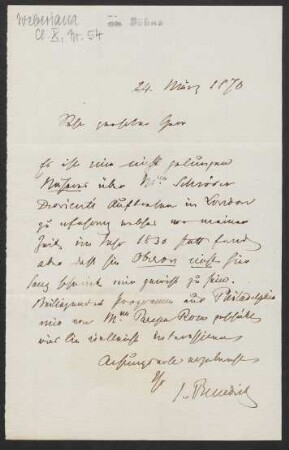 Weberiana
Cl. X, Nr. 54
24. März 1870
Sehr geehrter Herr
Es ist mir nicht gelungen
Näheres über Mme Schröder
Devrients Auftreten in London
zu erfahren welches vor meiner
Zeit im Jahr 1830 statt fand
aber dass sie Oberon nicht hier
sang scheint mir gewiss zu sein.
Programm aus Philadelphia
mir von Mme Parepa Rosa geschickt
wird Sie vielleicht interessieren
Achtungsvoll
Ihr
J. Benedict